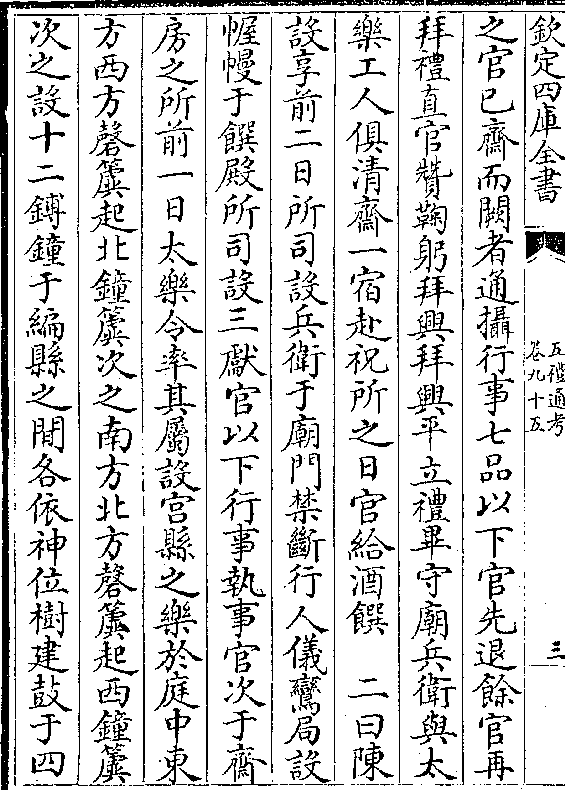 欽定四庫全書
五禮通考
卷九十五
三
之官已齋而闕者通攝行事七品以下官先退餘官再
拜禮直官贊鞠躬拜興拜興平立禮畢守廟兵衛與太
樂工人俱清齋一宿赴祝所之日官給酒饌　二曰陳
設享前二日所司設兵衛于廟門禁斷行人儀鸞局設
幄幔于饌殿所司設三獻官以下行事執事官次于齋
房之所前一日太樂令率其屬設宮縣之樂於庭中東
方西方磬簴起北鐘簴次之南方北方磬簴起西鐘簴
次之設十二鎛鐘于編縣之間各依神位樹建鼓于四